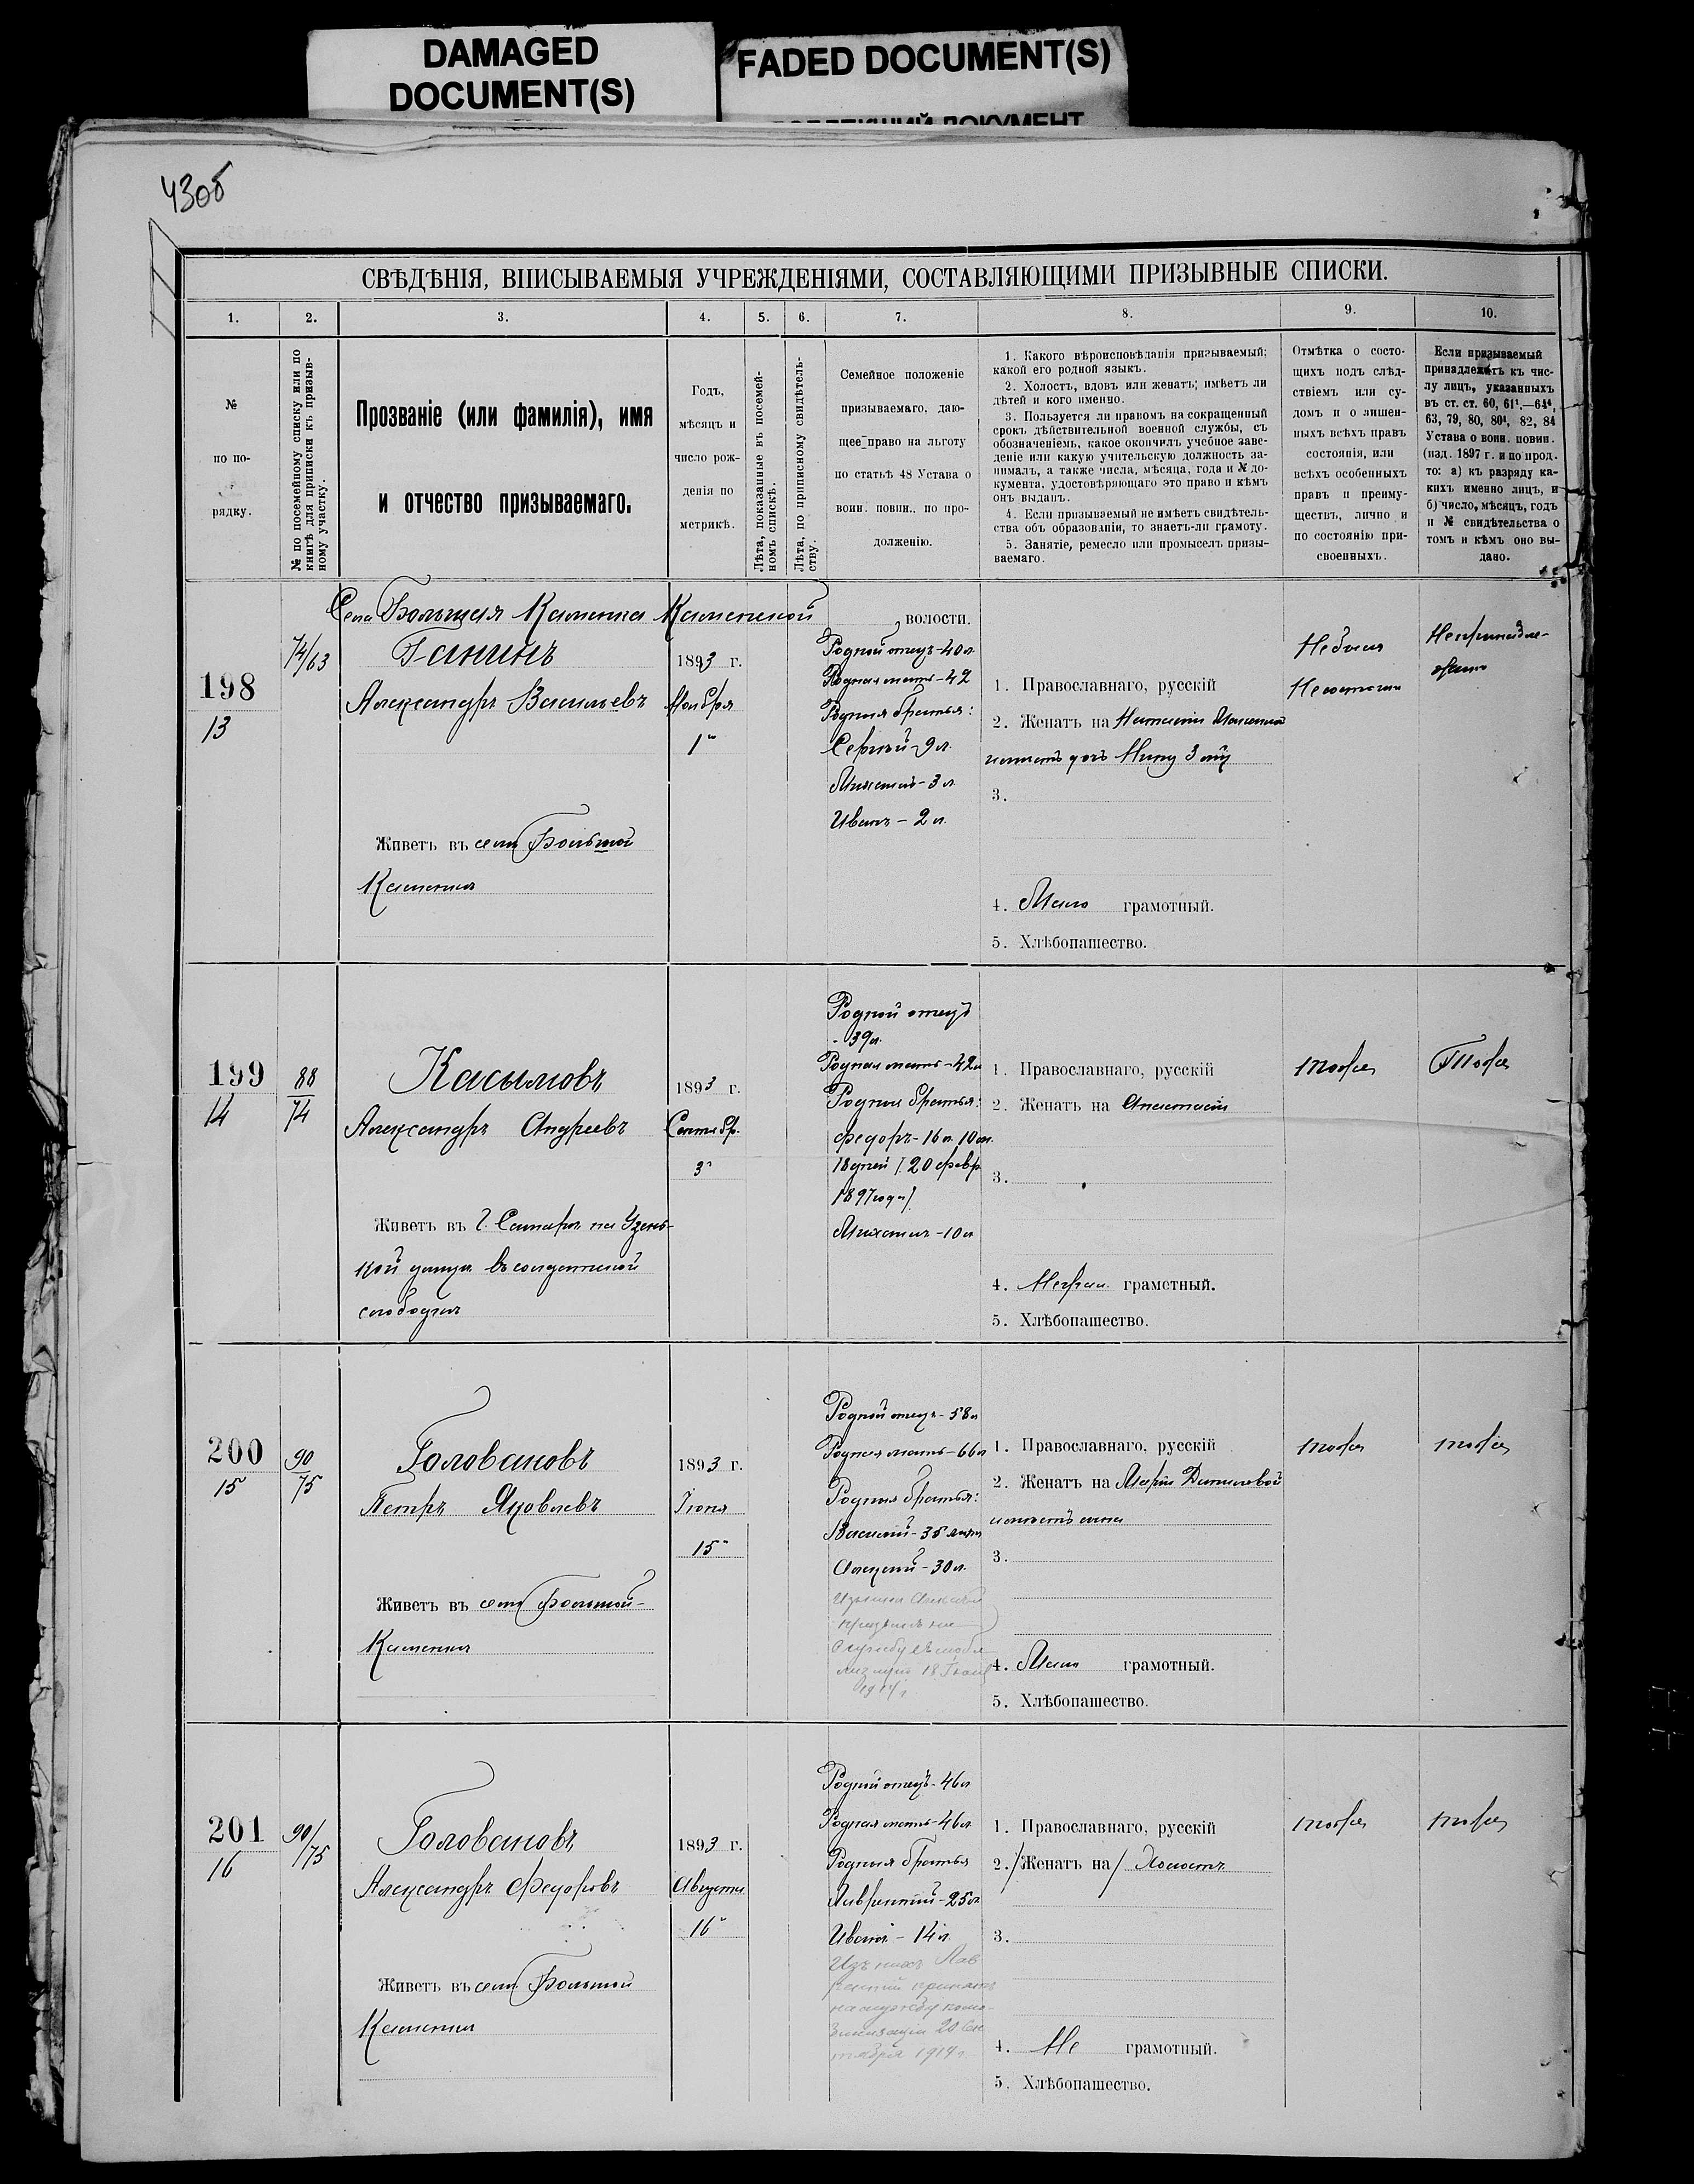 DAMAGED
DOCUMENT(S)
FADED DOCUMENT(S)
430б
СВѢДѢНІЯ, ВПИСЫВАЕМЫЯ УЧРЕЖДЕНІЯМИ, СОСТАВЛЯЮЩИМИ ПРИЗЫВНЫЕ СПИСКИ.
1. 2. 3. 4. 5. 6. 7. 8. 9. 10.
№
по по-
рядку.
№ по посемейному списку или по
книгѣ для приписки къ призыв-
ному участку.
Прозваніе (или фамилія), имя
и отчество призываемаго.
Годъ,
мѣсяцъ и
число рож-
денія по
метрикѣ.
Лѣта, показанные въ посемей-
номъ спискѣ.
Лѣта, по приписному свидѣтель-
ству.
Семейное положеніе
призываемаго, даю-
щее право на льготу
по статьѣ 48 Устава о
воин. повин., по про-
долженію.
1. Какого вѣроисповѣданія призываемый;
какой его родной языкъ.
2. Холостъ, вдовъ или женатъ; имѣетъ ли
дѣтей и кого именно.
3. Пользуется ли правомъ на сокращенный
срокъ дѣйствительной военной службы, съ
обозначеніемъ, какое окончилъ учебное заве-
деніе или какую учительскую должность за-
нималъ, а также числа, мѣсяца, года и № до-
кумента, удостовѣряющаго это право и кѣмъ
онъ выданъ.
4. Если призываемый не имѣетъ свидѣтель-
ства объ образованіи, то знаетъ-ли грамоту.
5. Занятіе, ремесло или промыселъ призы-
ваемаго.
Отмѣтка о состо-
щихъ подъ слѣд-
ствіемъ или су-
домъ и о лишен-
ныхъ всѣхъ правъ
состоянія, или
всѣхъ особенныхъ
правъ и преиму-
ществъ, лично и
по состоянію при-
своенныхъ.
Если призываемый
принадлежитъ къ чис-
лу лицъ, указанныхъ
въ ст. ст. 60, 61¹.—64⁴,
63, 79, 80, 80¹, 82, 84
Устава о воин. повин.
(изд. 1897 г. и по прод.
то: а) къ разряду ка-
кихъ именно лицъ, и
б) число, мѣсяцъ, годъ
и № свидѣтельства о
томъ и кѣмъ оно вы-
дано.
Села Большая Каменка Каменской волости.
198
13
74/63
Ганинъ
Александръ Васильевъ
Живетъ въ селѣ Большой
Каменкѣ
1893 г.
Ноября
1"
Родной отецъ-40л.
Родная мать-42
Родныя братья:
Сергѣй-9л.
Михаилъ-3л.
Иванъ-2л.
1. Православнаго, русскій
2. Женатъ на Наталіи
имѣетъ дочь Нину
3.
4. Мало грамотный.
5. Хлѣбопашество.
Не былъ
Не состоитъ
Непринадле-
житъ
199
14
88
74
Касымовъ
Александръ Андреевъ
Живетъ въ г. Самарѣ на Узень-
кой улицѣ въ солдатской
слободкѣ
1893 г.
Сентябр.
3"
Родной отецъ
-39л.
Родная мать-42л
Родныя братья:
Федоръ-16л. 10м.
18 дней (20 февр.
1897 года)
Михаилъ-10л
1. Православнаго, русскій
2. Женатъ на Анастасіи
3.
4. Неграм. грамотный.
5. Хлѣбопашество.
тоже
Тоже
200
15
90
75
Головановъ
Петръ Яковлевъ
Живетъ въ селѣ Большой-
Каменкѣ
1893 г.
Іюня
15"
Родной отецъ-58л
Родная мать-66л
Родныя братья:
Василій-35 лѣтъ
Алексѣй-30л.
Изъ нихъ Алексѣй
призванъ на
службу съ моби-
лизаціи 18 Іюля
1914 г.
1. Православнаго, русскій
2. Женатъ на Маріи Даниловой
имѣетъ сына
3.
4. Мало грамотный.
5. Хлѣбопашество.
тоже
тоже
201
16
90/75
Головановъ
Александръ Федоровъ
Живетъ въ селѣ Большой
Каменкѣ
1893 г.
Августа
16"
Родной отецъ-46л
Родная мать-46л
Родныя братья
Лаврентій-25л
Иванъ-14л
Изъ нихъ Лав
рентій принятъ
на службу по мо-
билизаціи 20 Сен
тября 1914 г.
1. Православнаго, русскій
2. /Женатъ на/ Холостъ
3.
4. Не грамотный.
5. Хлѣбопашество.
тоже
тоже